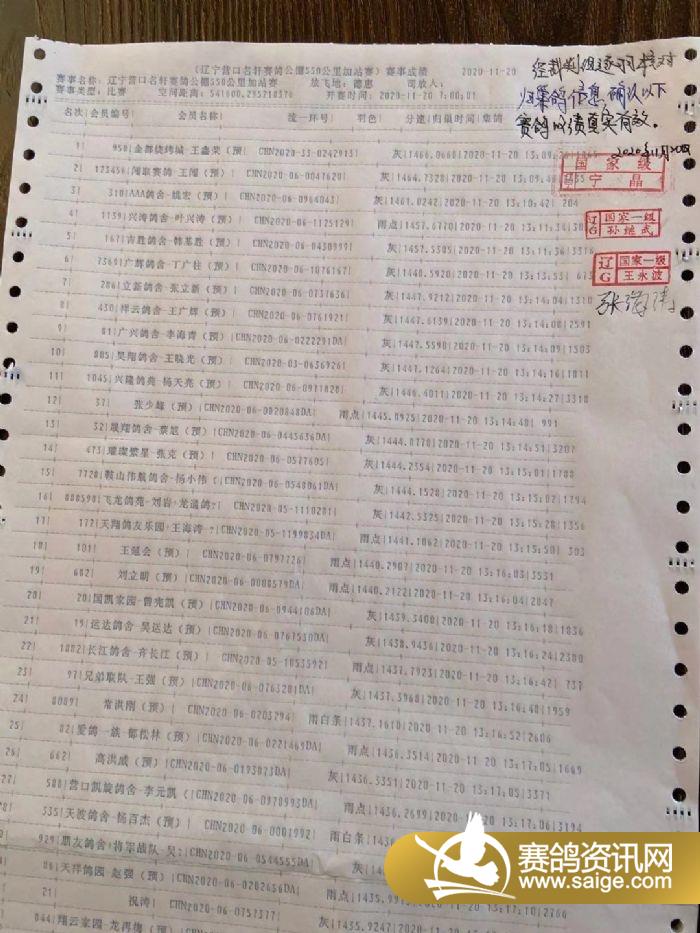 (辽宁营口名轩赛鸽公棚550公里加站赛)赛事成绩 2020-11-20
赛事名称: 辽宁营口名轩赛鸽公棚550公里加站赛 放飞地: 德惠 司放人:
赛事类型: 比赛 空间距离: 开赛时间: 2020-11-20 7:00:01
经裁判组逐羽核对
归巢鸽信息,确认以下
赛鸽成绩真实有效。
2020年11月20日
国家级
宁晶
辽G 国家一级 孙继武
辽G 国家一级 王永波
名次|会员编号 会员名称 统一环号 羽色 分速|归巢时间|集鸽
1 950 王鑫荣(预) CHN2020-33-0242913 灰|1466.0668|2020-11-20
2 123456 闯联赛鸽-王闯(预) CHN2020-06-0047620 灰|1464.7328|2020-11-20
3 310 AAA鸽舍-姚宏(预) CHN2020-06-0964043 灰|1461.0242|2020-11-20 13:10:42| 204
4 1139 兴涛鸽舍-叶兴涛(预) CHN2020-06-1125129 雨点|1457.6770|2020-11-20 13:11:34
5 167 吉胜鸽舍-韩基胜(预) CHN2020-06-0430999 灰|1457.5305|2020-11-20 13:11:36|3316
6 7369 广辉鸽舍-丁广柱(预) CHN2020-06-1076167 雨点|1448.5920|2020-11-20 13:13:53| 673
7 286 立新鸽舍-张立新(预) CHN2020-06-0737636 灰|1447.9212|2020-11-20 13:14:04|1310
8 430 祥云鸽舍-王广辉(预) CHN2020-06-0761921 灰|1447.6139|2020-11-20 13:14:08|2591
9 81 广兴鸽舍-李海青(预) CHN2020-06-0222291DA 灰|1447.5598|2020-11-20 13:14:09|1503
10 885 昊翔鸽舍-王晓光(预) CHN2020-03-0636926 灰|1447.1264|2020-11-20 13:14:16|1811
11 1045 兴隆鸽苑-杨天亮(预) CHN2020-06-0911820 灰|1446.4011|2020-11-20 13:14:27|3318
12 37 张少峰(预) CHN2020-06-0820848DA 雨点|1445.0925|2020-11-20 13:14:48| 991
13 52 晟翔鸽舍 (预) CHN2020-06-0445636DA 灰|1444.8770|2020-11-20 13:14:51|3207
14 473 璀璨繁星-张克(预) CHN2020-06-0577605 灰|1444.2354|2020-11-20 13:15:01|1788
15 7728 鞍山伟航鸽舍-杨小伟( CHN2020-06-0548061DA 灰|1444.1528|2020-11-20 13:15:02|1294
16 888598 飞龙鸽苑-刘岩+龙遥鸽? CHN2020-05-1110281 灰|1442.5325|2020-11-20 13:15:28|1356
17 177 天翔鸽友乐园-王海涛? CHN2020-05-1199834DA 灰|1441.1062|2020-11-20 13:15:50| 303
18 101 王冠会(预) CHN2020-06-0797726 雨点|1440.2907|2020-11-20 13:16:03|3531
19 682 刘立明(预) CHN2020-06-0008579DA 雨点|1440.2122|2020-11-20 13:16:04|2847
20 20 国凯家园-曾宪凯(预) CHN2020-06-0944106DA 灰|1439.3408|2020-11-20 13:16:18|1836
21 19 运达鸽舍-吴运达(预) CHN2020-06-0767530DA 灰|1438.9436|2020-11-20 13:16:24|2380
22 1882 长江鸽舍-齐长江(预) CHN2020-05-1053592 雨点|1437.7923|2020-11-20 13:16:42| 737
23 97 兄弟联队-王强(预) CHN2020-06-0763201DA 灰|1437.3968|2020-11-20 13:16:48|1959
24 8089 常洪刚(预) CHN2020-06-0203294 雨白条|1437.1610|2020-11-20 13:16:52|2606
25 82 爱鸽一族-郁松林(预) CHN2020-06-0221469DA 雨点|1436.3514|2020-11-20 13:17:05|1669
26 662 高洪威(预) CHN2020-06-0193073DA 灰|1436.3351|2020-11-20 13:17:05|3371
27 588 营口凯旋鸽舍-李元凯( CHN2020-06-0970993DA 雨点|1436.2699|2020-11-20 13:17:06|3194
28 335 天波鸽舍-杨百杰(预) CHN2020-06-0001992 雨白条
929 朋友鸽舍+将军战队 CHN2020-06-0544555DA 灰
86 天祥鸽园-赵强(预) CHN2020-06-0202656DA 雨点
21 祝涛(预) CHN2020-06-0757377 灰|1435.99 13:17:10|2766
044 翔云家园-龙再 (预) 灰|1435.9247|2020-11-20
赛鸽资讯网
www.saige.com